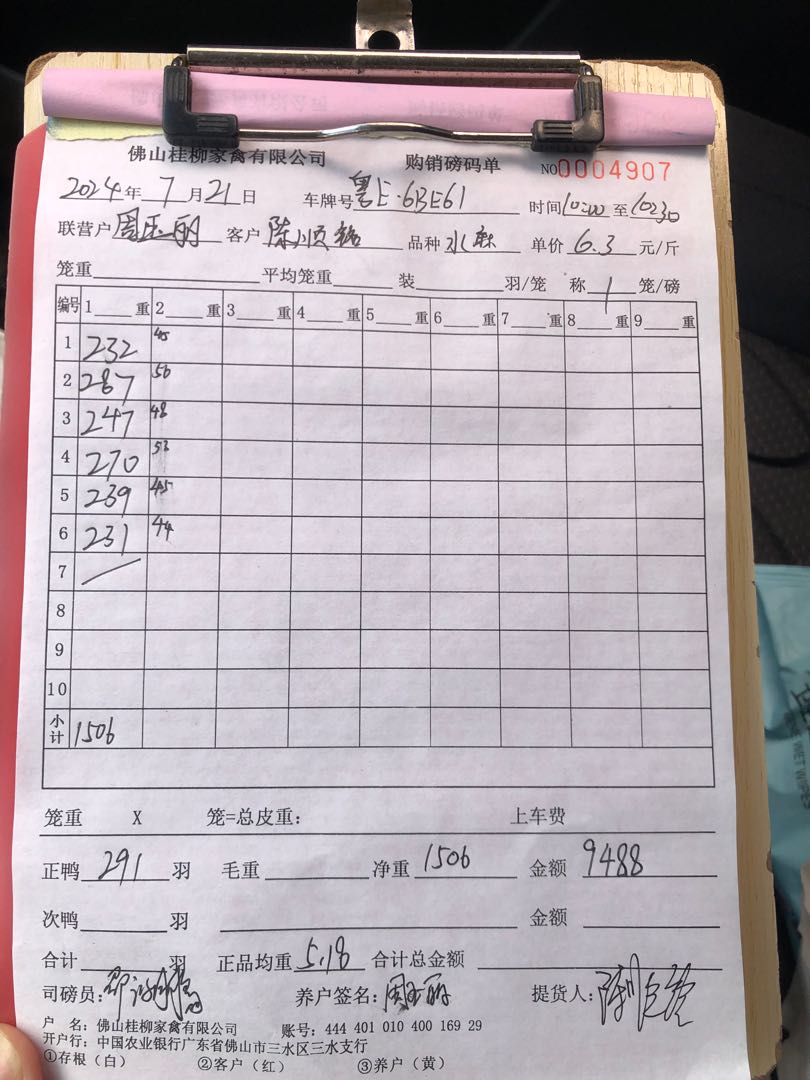 佛山桂柳家禽有限公司 购销磅码单 NO0004907
2024年7月21日 车牌号粤E·6BE61 时间10:00至10:30
联营户周玉丽 客户陈顺 品种水麻 单价6.3元/斤
笼重 平均笼重 装 羽/笼 称1笼/磅
编号 1 重 2 重 3 重 4 重 5 重 6 重 7 重 8 重 9 重
1 232 45
2 287 56
3 247 48
4 270 53
5 239 45
6 231 44
7
8
9
10
小计 1506
笼重 X 笼=总皮重: 上车费
正鸭291羽 毛重 净重1506 金额9488
次鸭 羽 金额
合计 羽 正品均重5.18 合计总金额
司磅员: 养户签名:周玉丽 提货人:陈
户 名:佛山桂柳家禽有限公司 账号:444 401 010 400 169 29
开户行:中国农业银行广东省佛山市三水区三水支行
①存根(白) ②客户(红) ③养户(黄)